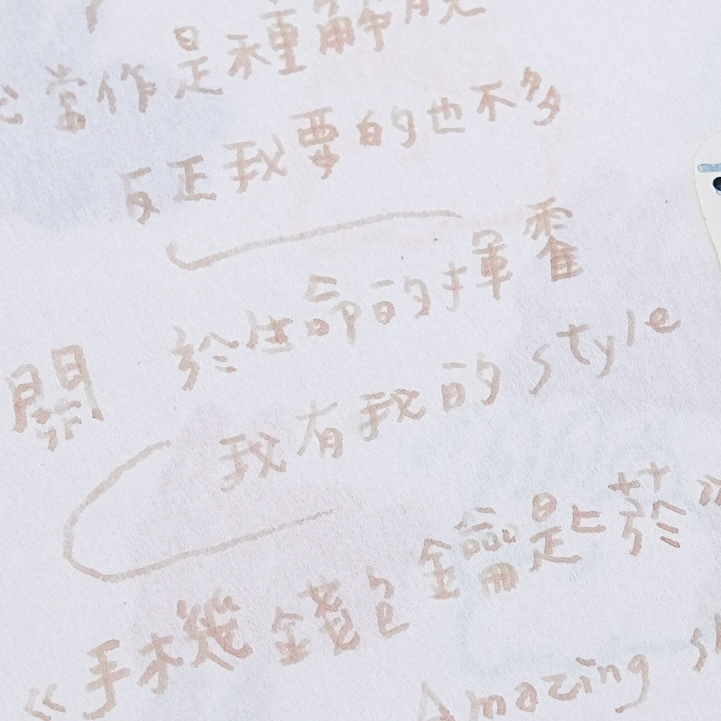 當作是種解脫
反正我要的也不多
關於生命的揮霍
我有我的 style
《手機 錢包 鑰匙 菸
Amazing